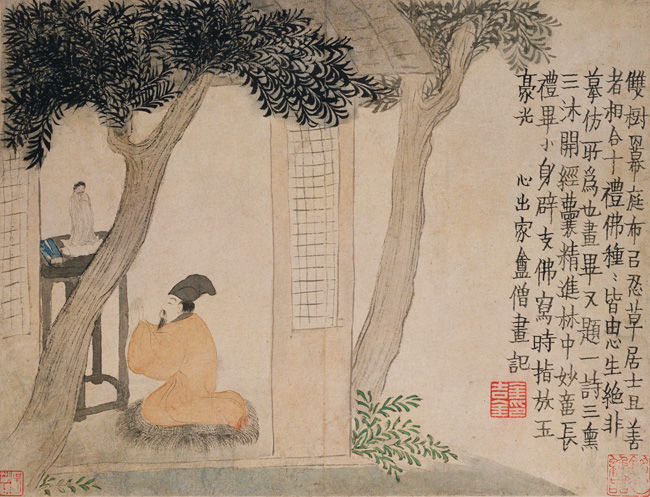 雙樹羃庭布㠯忍草居士且善
者相合十禮佛種〻皆由心生絶非
摹仿所爲也畫畢又題一詩三熏
三沐開經囊精進林中妙長
禮畢小身辟支佛寫時指放玉
豪光 心出家盦僧畫記